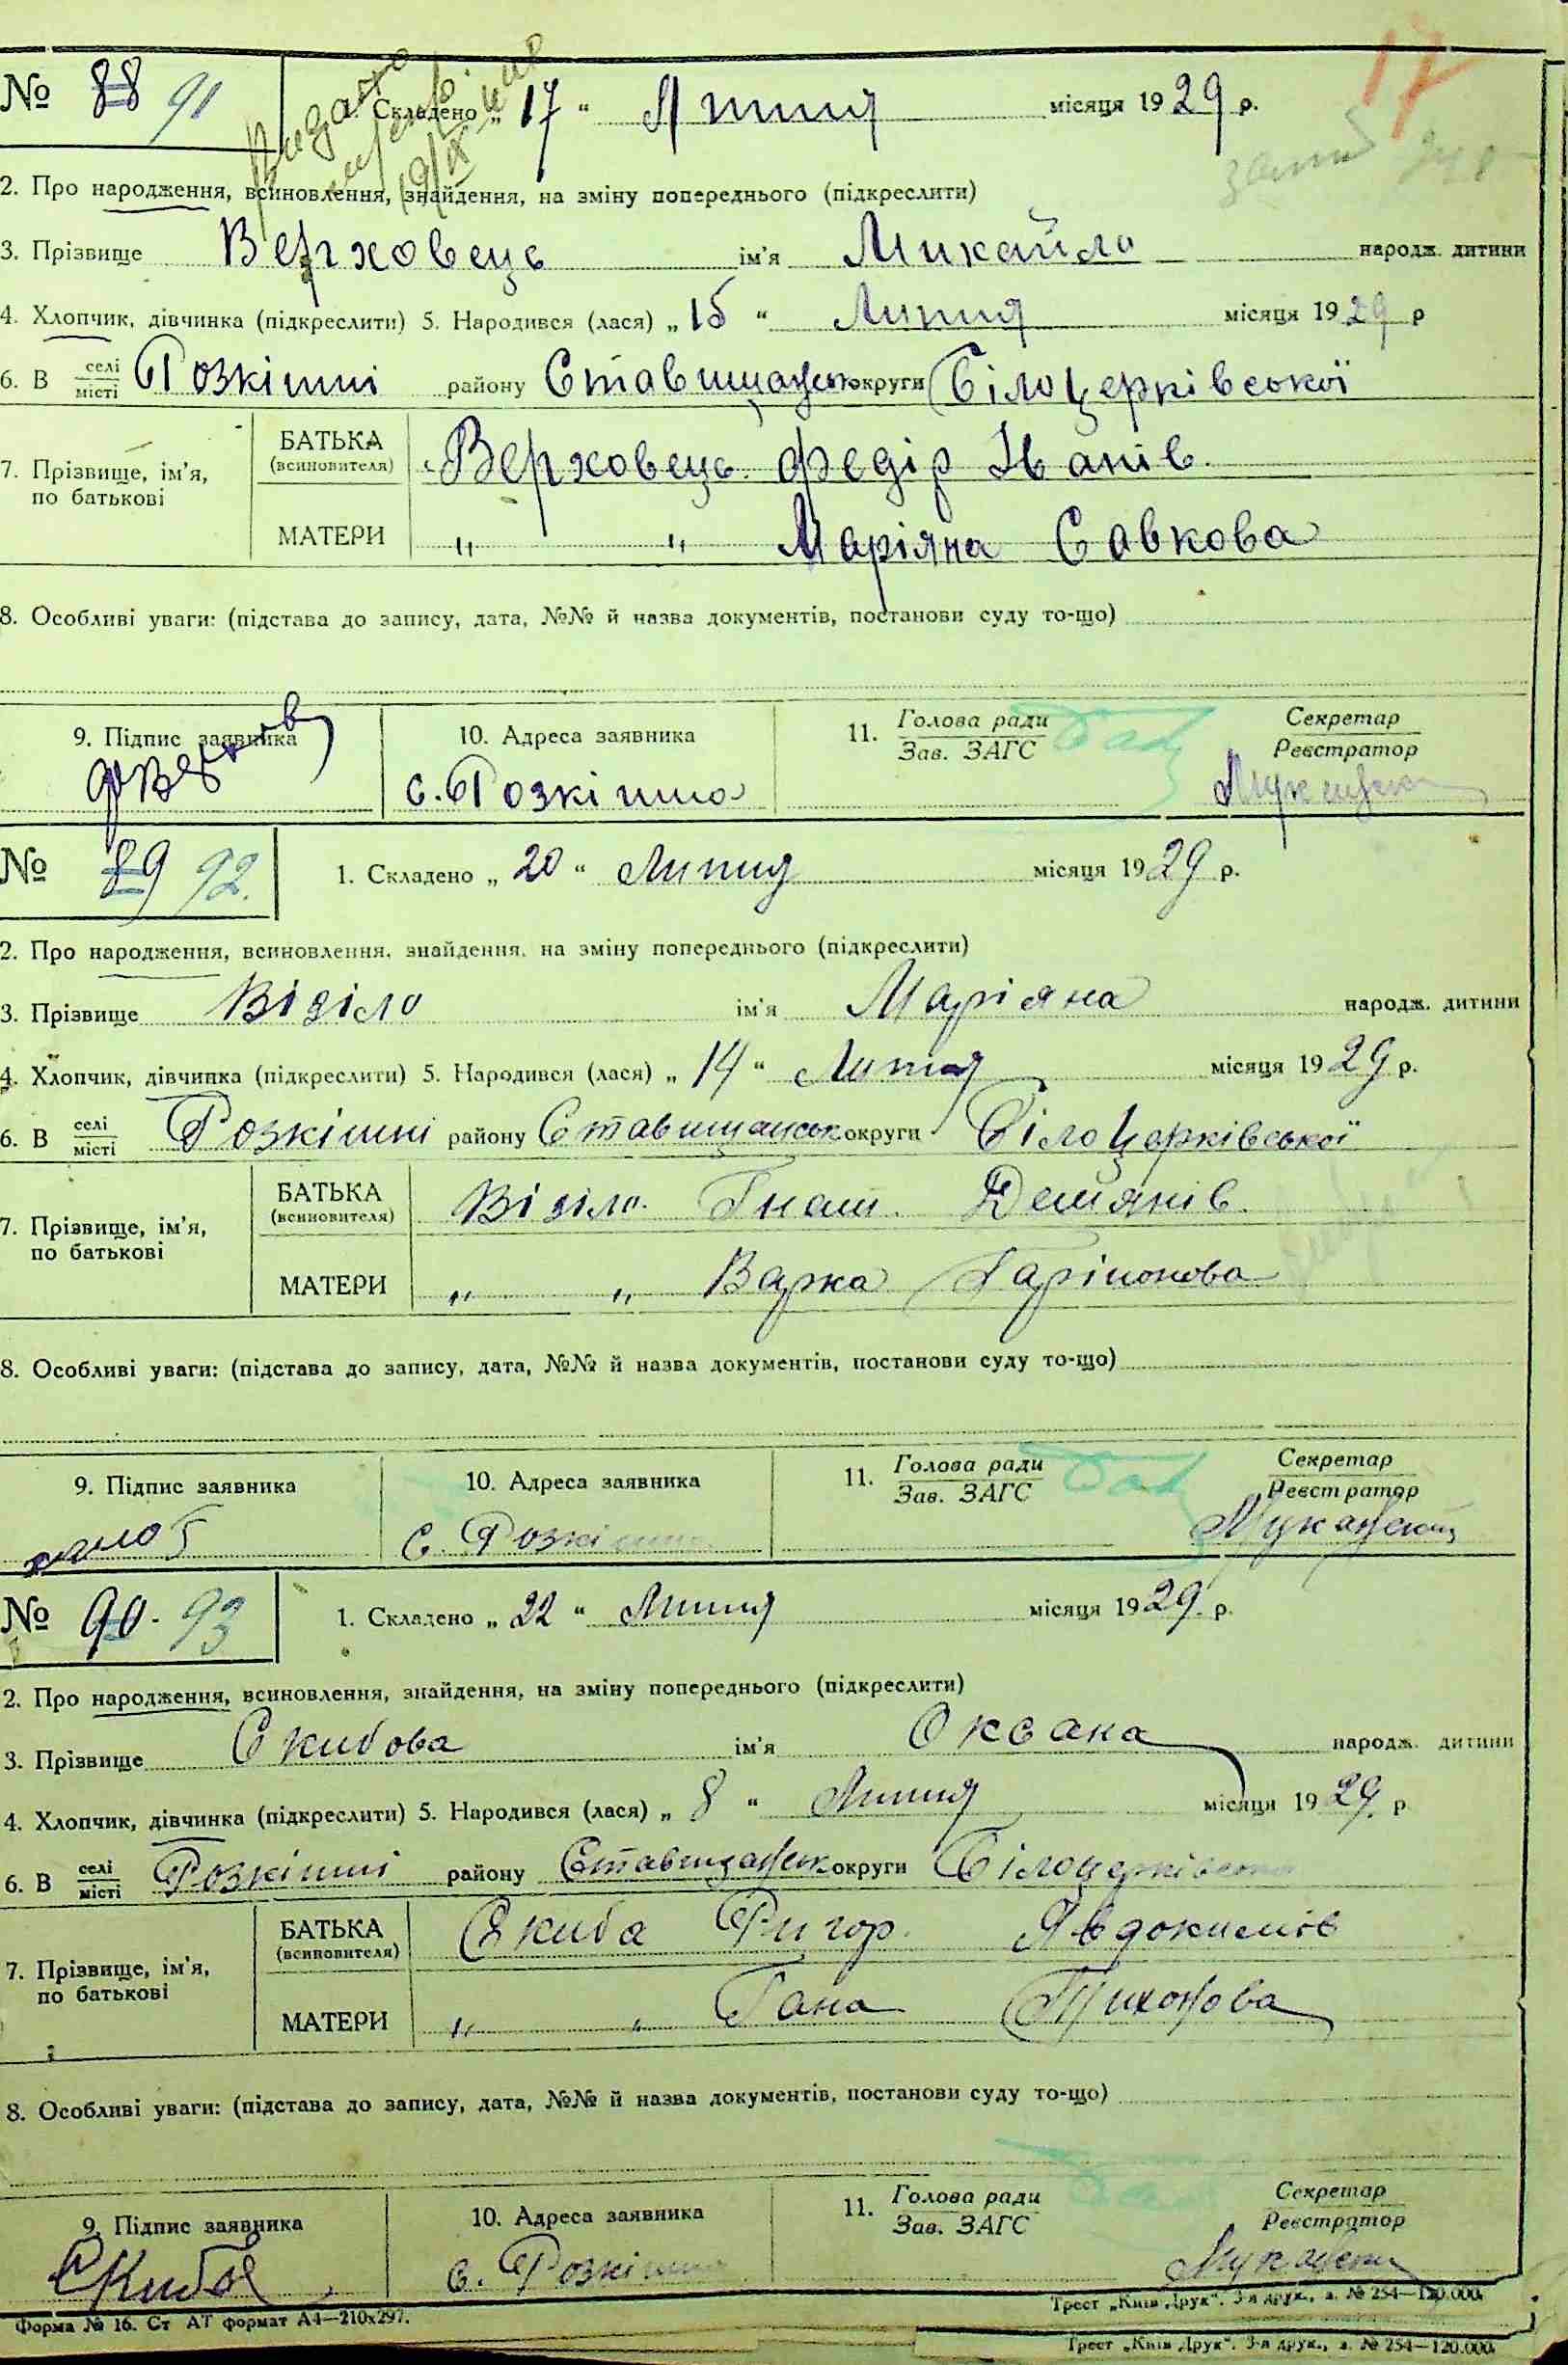 17
№ 88 91 Складено „ 17 “ Липня місяця 1929 р.
2. Про народження, всиновлення, знайдення, на зміну попереднього (підкреслити)
3. Прізвище Верховець ім'я Михайло народж. дитини
4. Хлопчик, дівчинка (підкреслити) 5. Народився (лася) „ 15 “ Липня місяця 1929 р
6. В селі місті Розкішні району Ставищанськ округи Білоцерківської
7. Прізвище, ім'я, по батькові
БАТЬКА (всиновителя) Верховець Федір Іванів.
МАТЕРИ „ „ Маріяна Савкова
8. Особливі уваги: (підстава до запису, дата, №№ й назва документів, постанови суду то-що)
9. Підпис заявника 10. Адреса заявника 11. Голова ради Зав. ЗАГС Секретар Реєстратор
с. Розкішна
№ 89 92. 1. Складено „ 20 “ Липня місяця 1929 р.
2. Про народження, всиновлення, знайдення, на зміну попереднього (підкреслити)
3. Прізвище Візіло ім'я Маріяна народж. дитини
4. Хлопчик, дівчинка (підкреслити) 5. Народився (лася) „ 14 “ Липня місяця 1929 р.
6. В селі місті Розкішні району Ставищанськ округи Білоцерківської
7. Прізвище, ім'я, по батькові
БАТЬКА (всиновителя) Візіло Гнат Демянів.
МАТЕРИ „ „ Варка
8. Особливі уваги: (підстава до запису, дата, №№ й назва документів, постанови суду то-що)
9. Підпис заявника 10. Адреса заявника 11. Голова ради Зав. ЗАГС Секретар Реєстратор
с. Розкішна
№ 90. 93 1. Складено „ 22 “ Липня місяця 1929. р.
2. Про народження, всиновлення, знайдення, на зміну попереднього (підкреслити)
3. Прізвище Скибова ім'я Оксана народж. дитини
4. Хлопчик, дівчинка (підкреслити) 5. Народився (лася) „ 8 “ Липня місяця 1929. р
6. В селі місті Розкішні району Ставищанськ округи Білоцерківської
7. Прізвище, ім'я, по батькові
БАТЬКА (всиновителя) Скиба Григор Явдокимів
МАТЕРИ „ „ Гана Тихонова
8. Особливі уваги: (підстава до запису, дата, №№ й назва документів, постанови суду то-що)
9. Підпис заявника 10. Адреса заявника 11. Голова ради Зав. ЗАГС Секретар Реєстратор
Скиба с. Розкішна
Форма № 16. Ст АТ формат А4—210х297. Трест „Київ-Друк“. 3-я друк., з. № 254—120.000.
Трест „Київ-Друк“. 3-я друк., з. № 254—120.000.